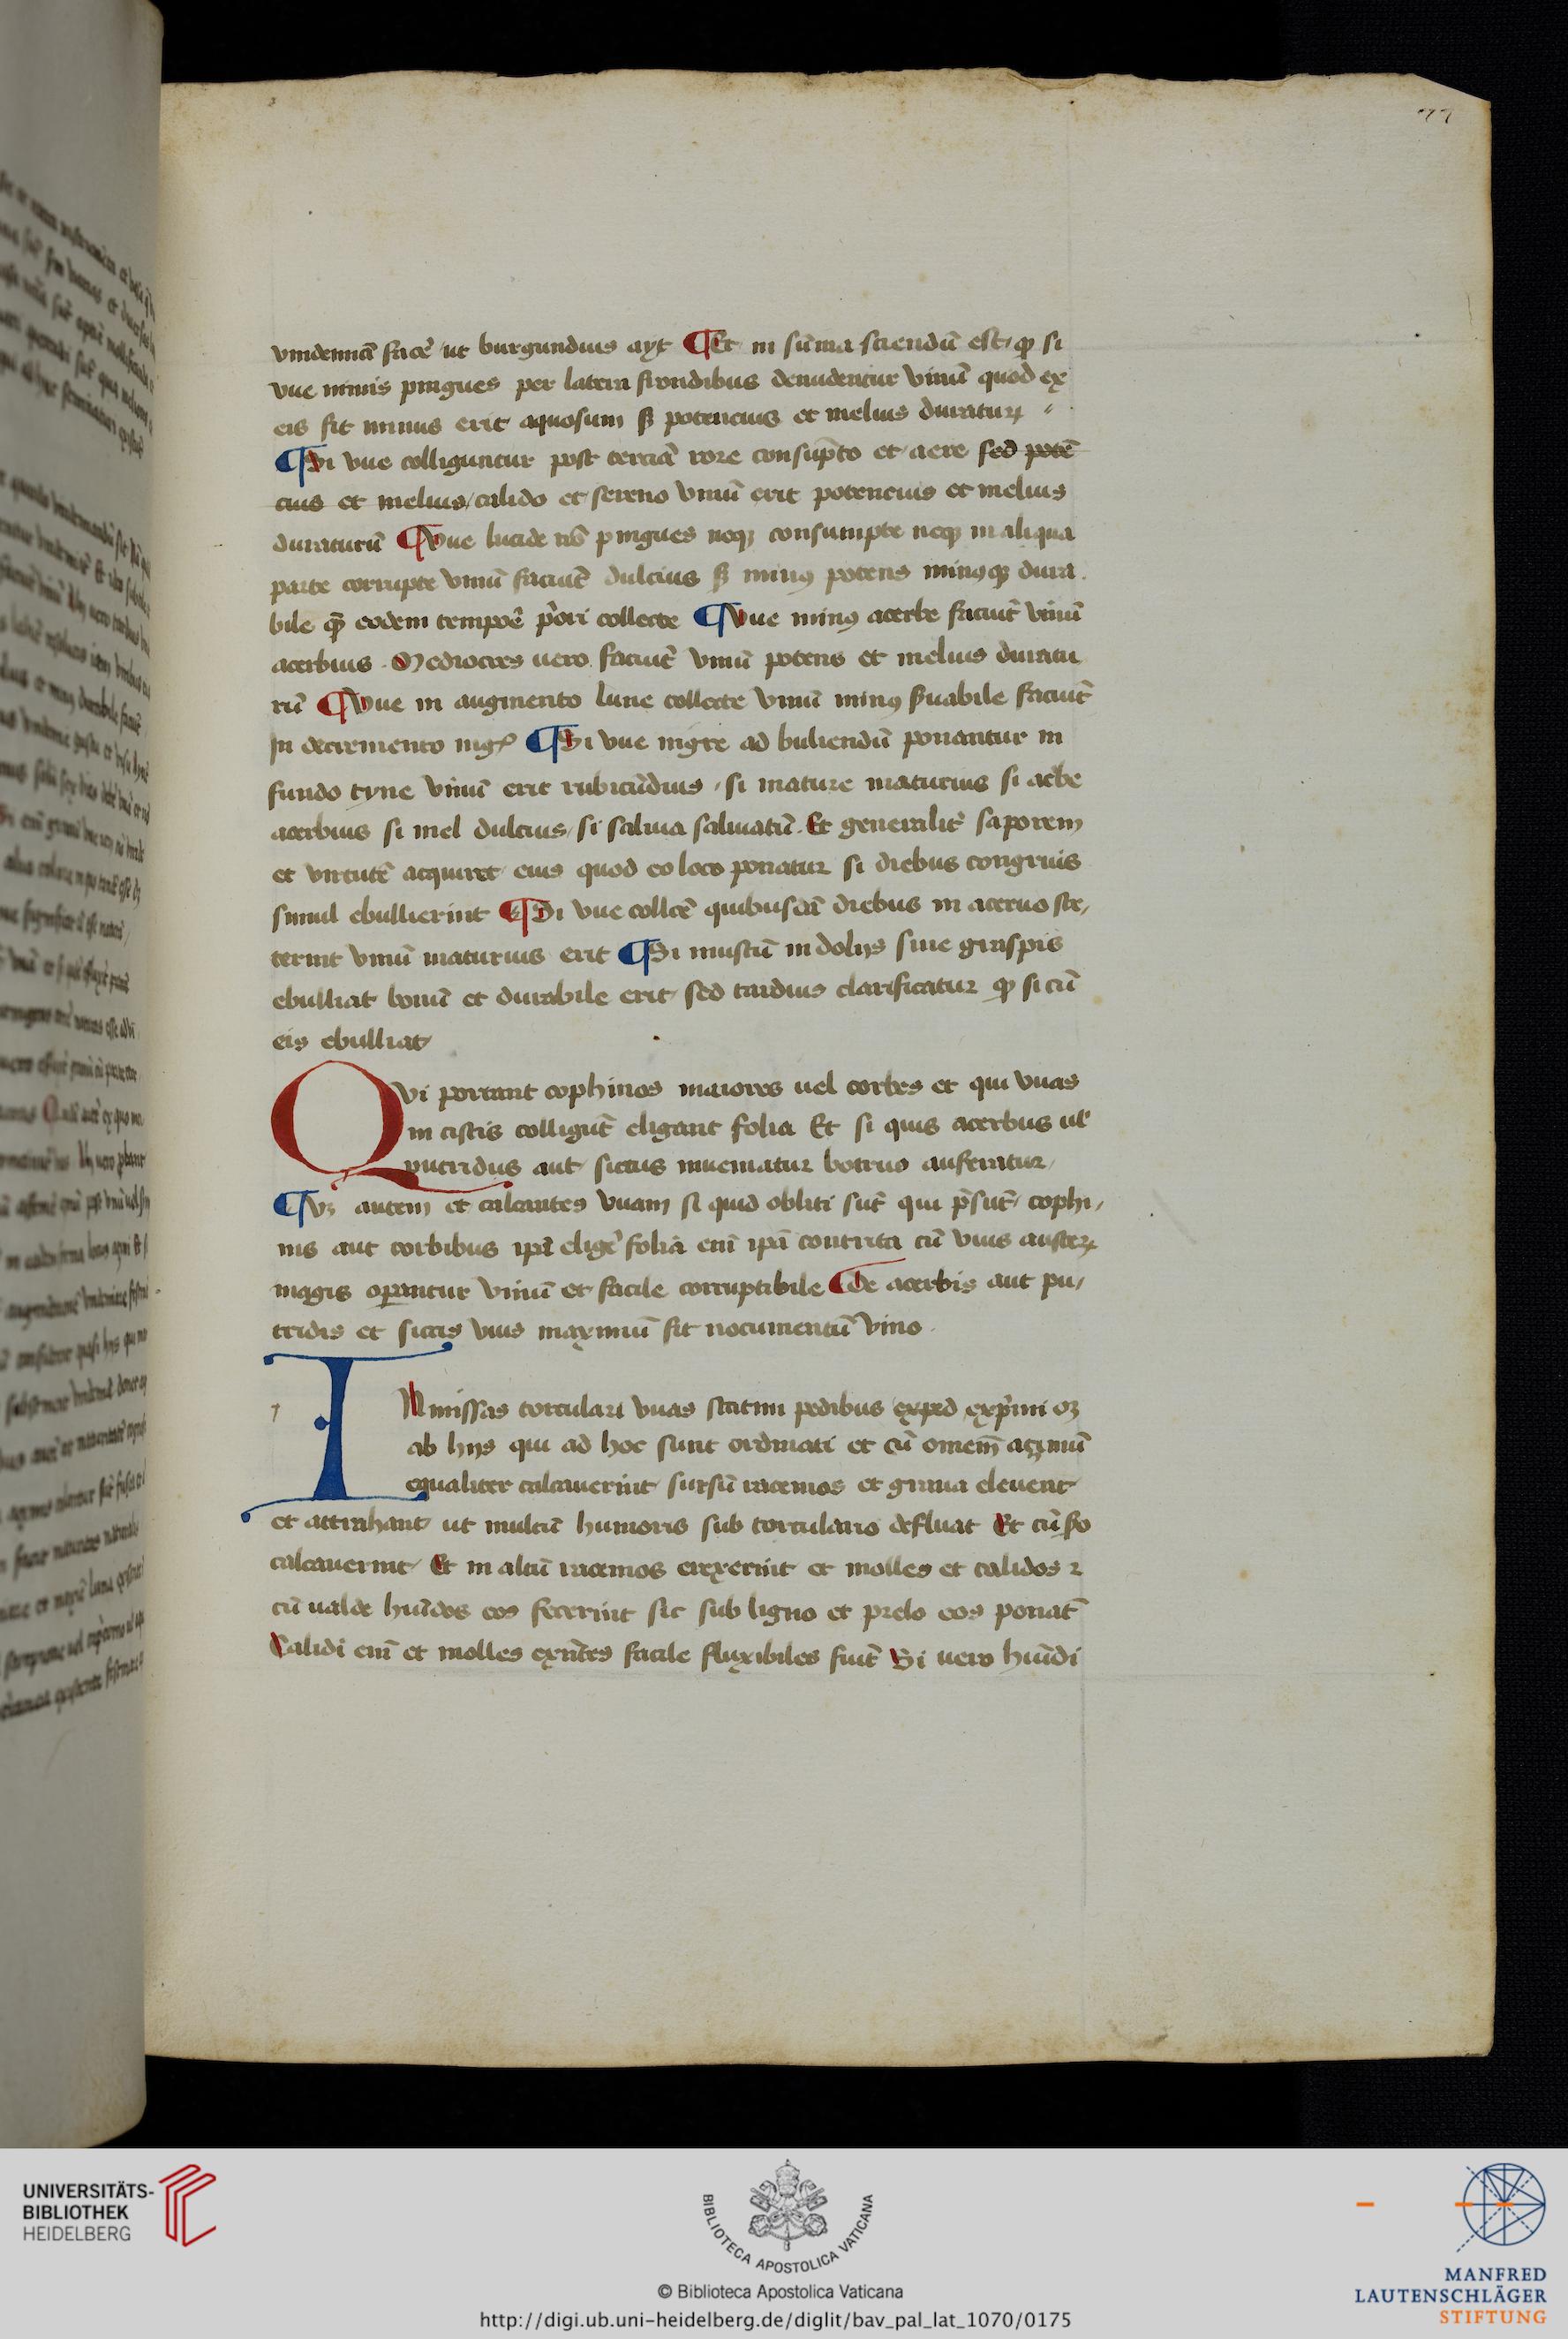 77
vindemiã facẽ ut burgundius ayt ¶ Et in sũma sciendũ est ꝙ si
vue nimis pingues per latera frondibus denudentur vinũ quod ex
eis fit minus erit aquosum sꝫ potencius et melius duraturꝝ
¶ Si vue colliguntur post terciã rore consũpto et aere sed potẽ
cius et melius calido et sereno vinũ erit potencius et melius
duraturũ ¶ Vue lucide nõ pingues neqꝫ consumpte neqꝫ in aliqua
parte corrupte vinũ faciũt dulcius sꝫ minꝯ potens minꝯqꝫ dura
bile qᷓ eodem tempoꝛe p̾ori collecte ¶ Vue minꝯ acerbe faciũt vinũ
acerbius . Mediocres uero faciũt vinũ potens et melius duratu
rũ ¶ Vue in augmento lune collecte vinũ minꝯ s̃uabile faciũt
In decremento mgꝭ ¶ Si vue nigre ad buliendũ ponantur in
fundo tyne vinũ erit rubicũdius , si mature maturius si acbe
acerbius si mel dulcius , si salvia salviatũ . Et generalit̃ saporem
et virtutẽ acquiret eius quod eo loco ponatur si diebus congruis
simul ebullierint ¶ Si vue collcẽ quibusdã diebus in aceruo ste,
terint vinũ maturius erit ¶ Si mustũ in dolijs sine graspis
ebulliat bonũ et durabile erit sed tardius clarificatur ꝙ si cũ
eis ebulliat
Qvi portant cophinos maiores uel corbes et qui vuas
in cistis colligũt eligant folia Et si quis acerbus ul'
putridus aut siccus inueniatur botrus auferatur,
¶ Vꝫ autem et calcantes vuam si quid obliti sũt qui p̃sũt cophi,
nis aut corbibus ip̃i eligẽ folia enĩ ip̃a contrita cũ vuis austerꝝ
magis oꝑantur vinũ et facile corruptibile ¶ De acerbis aut pu,
tridis et siccis vuis maximũ fit nocumentũ vino .
7
INmissas torculari vuas statim pedibus exped exp̾mi oꝫ
ab hijs qui ad hoc sunt ordinati et cũ omem̃ acinũ
equaliter calcauerint sursũ racemos et grana eleuent
et attrahant ut multũ humoris sub torculario defluat Et cũ s̃o
calcauerint Et in altũ racemos erexerint et molles et calidos ⁊
cũ ualde hũidos eos fecerint sic sub ligno et prelo eos ponãt
Calidi enĩ et molles exñtes facile fluxibiles fiũt Si uero hũidi
UNIVERSITÄTS-
BIBLIOTHEK
HEIDELBERG
BIBLIOTECA APOSTOLICA VATICANA
© Biblioteca Apostolica Vaticana
http://digi.ub.uni-heidelberg.de/diglit/bav_pal_lat_1070/0175
MANFRED
LAUTENSCHLÄGER
STIFTUNG